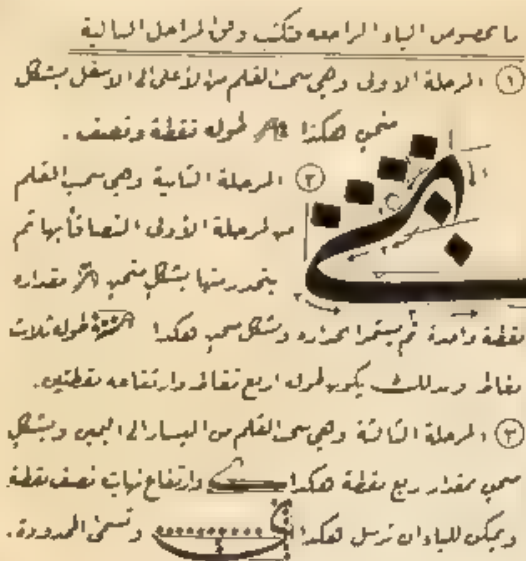 ما بخصوص الياء الراجعه فتكتب وفق المراحل التالية
١ المرحلة الاولى وهي سحب القلم من الأعلى الى الاسفل بشكل
منحن هكذا طوله نقطة ونصف .
٢ المرحلة الثانية وهي سحب القلم
من المرحلة الأولى التصاقاً بها ثم
ينحدر منها بشكل منحن مقداره
نقطة واحدة ثم يستمر انحداره وبشكل سحب هكذا طوله ثلاث
نقاط وبذلك يكون طوله اربع نقاط وارتفاعه نقطتين .
٣ المرحلة الثالثة وهي سحب القلم من اليسار الى اليمين وبشكل
سحب بمقدار ربع نقطة هكذا وارتفاع نهايته نصف نقطة
ويمكن للياء ان ترسل هكذا وتسمى الممدودة .